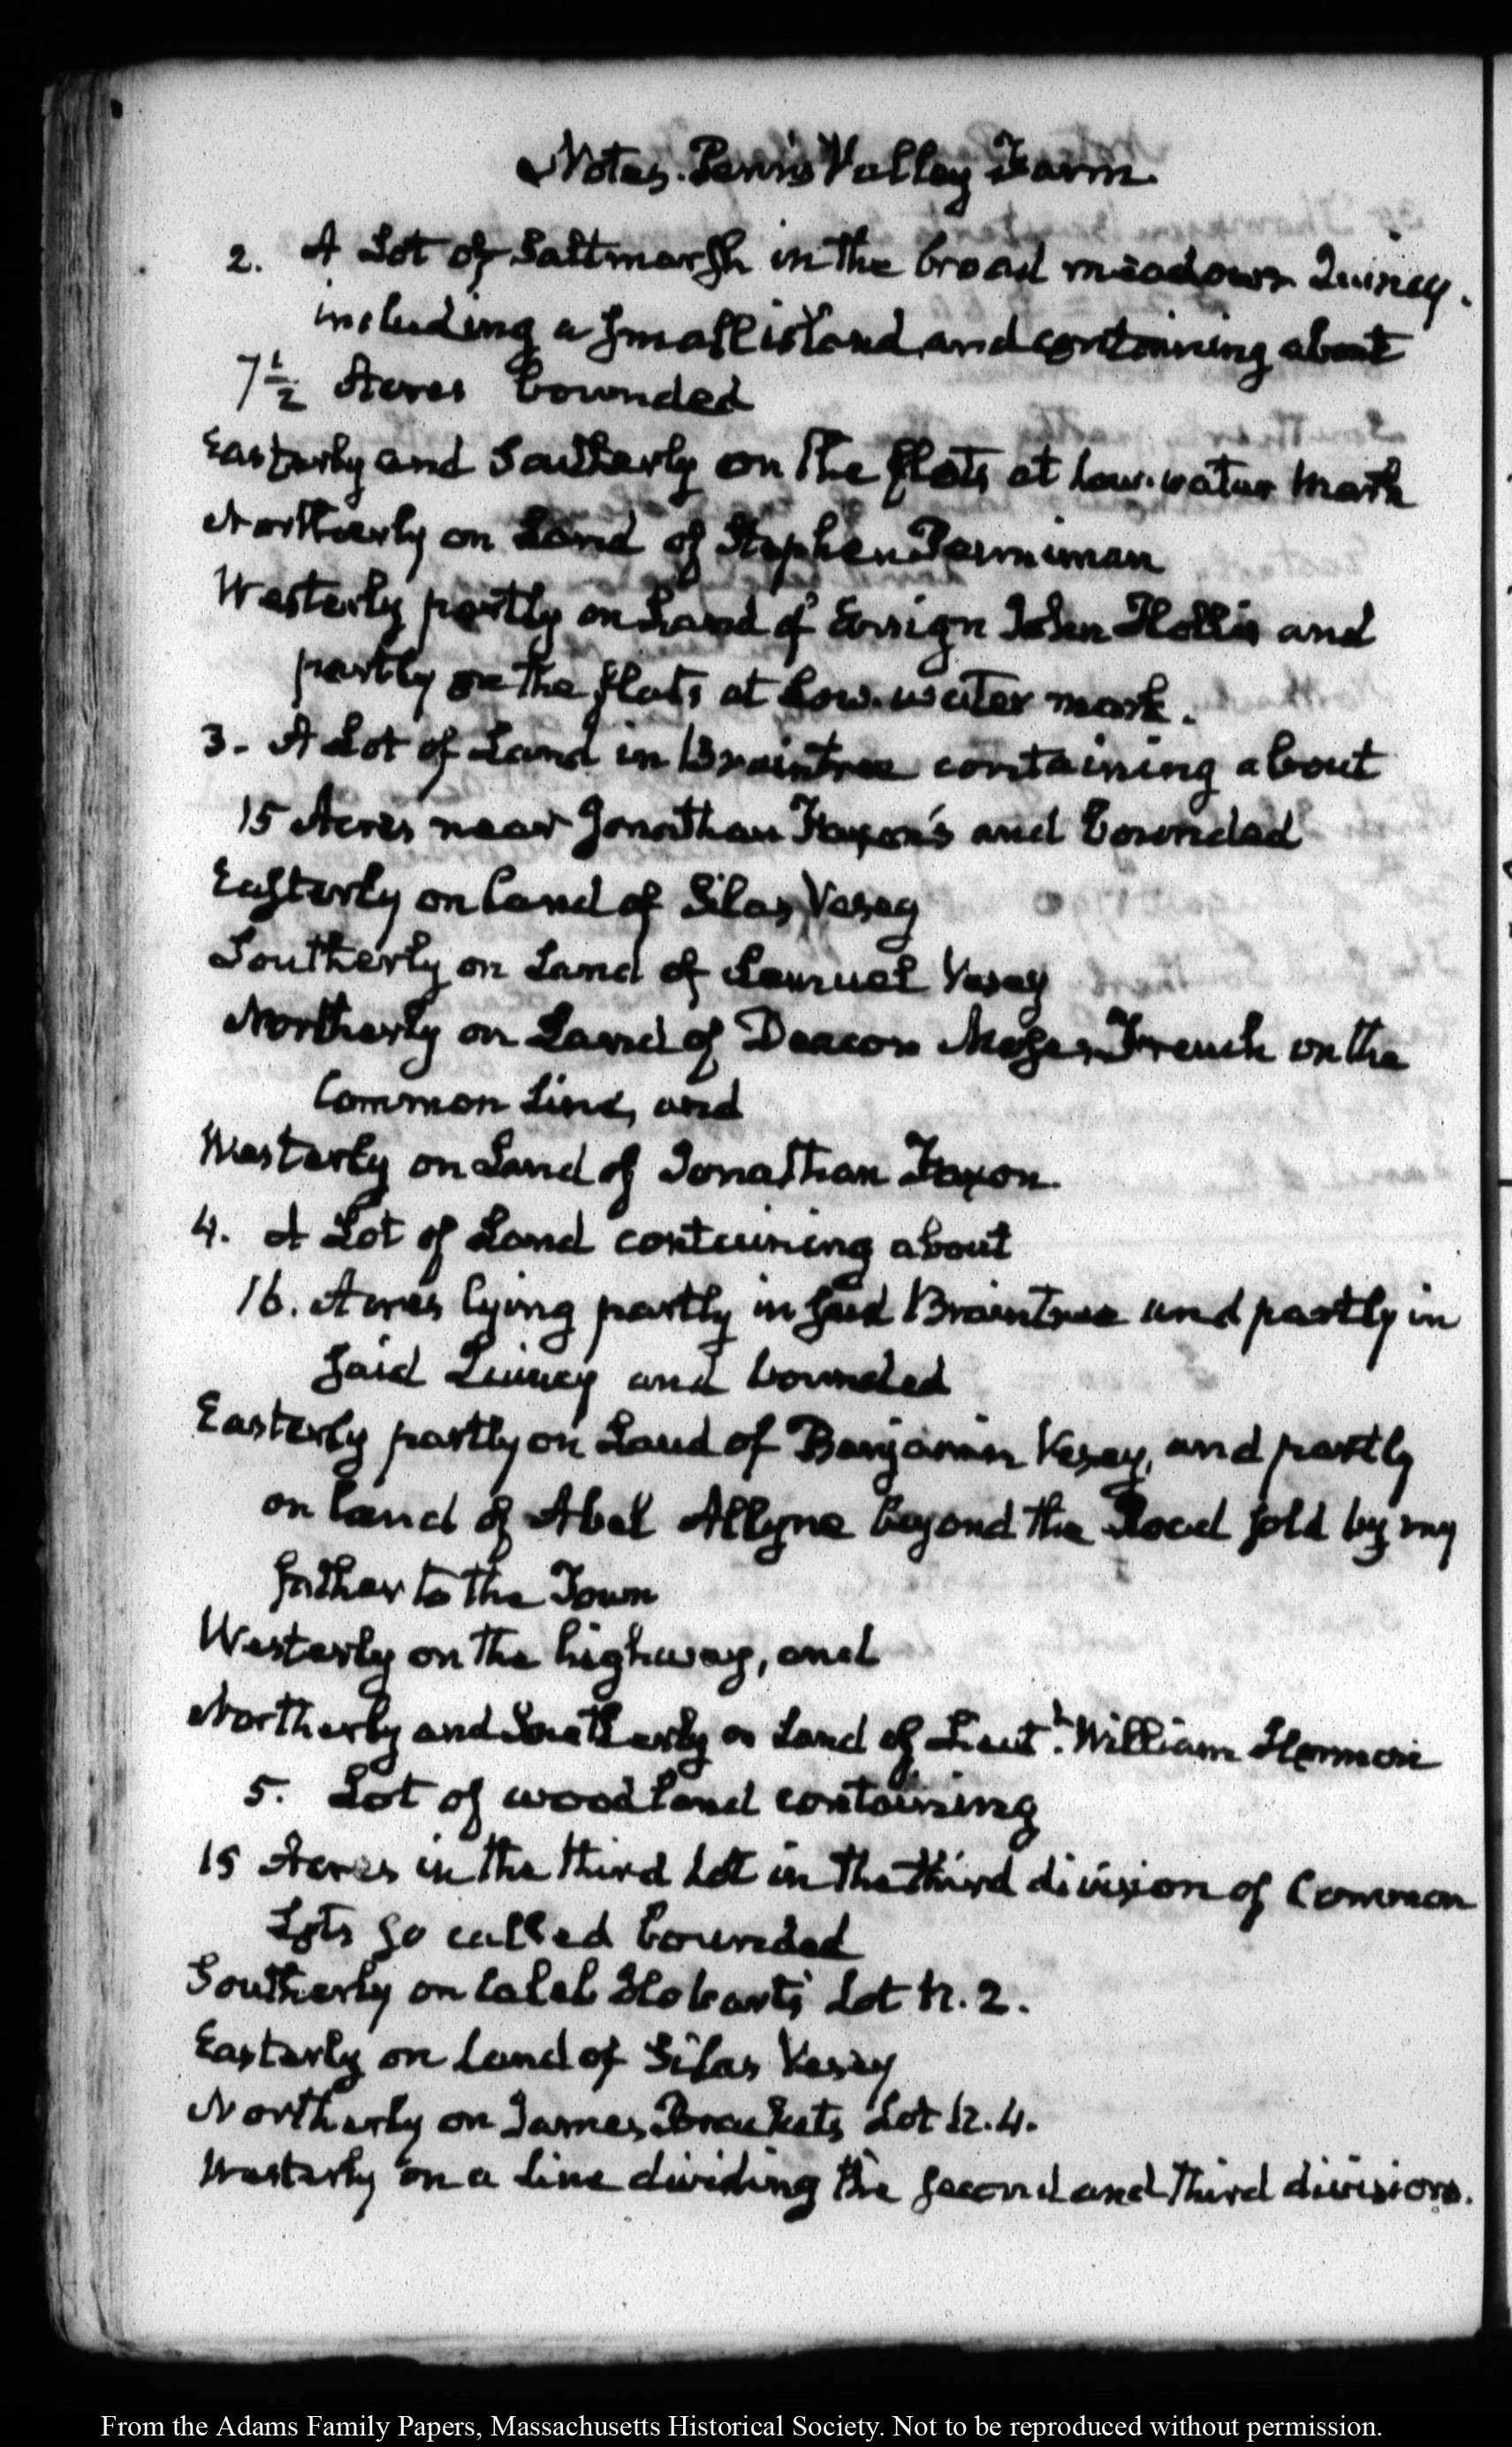 Notes. Penn's Valley Farm.
2. A Lot of Saltmarsh in the broad meadows Quincy.
including a small island, and containing about
7½ Acres bounded
Easterly and Southerly on the flats at low-water mark
Northerly on Land of Stephen Penniman
Westerly partly on Land of Ensign John Hollis and
partly on the flats at low-water mark.
3. A Lot of Land in Braintree containing about
15 Acres near Jonathan Faxon's and bounded
Easterly on land of Silas Vesey
Southerly on Land of Lemuel Vesey
Northerly on Land of Deacon Moses French on the
Common Line, and
Westerly on Land of Jonathan Faxon.
4. A Lot of Land containing about
16. Acres lying partly in said Braintree and partly in
said Quincy and bounded
Easterly partly on Land of Benjamin Vesey, and partly
on land of Abel Allyne beyond the Road sold by my
father to the Town
Westerly on the highway, and
Northerly and Southerly on Land of Lieut.t William
5. Lot of woodland containing
15 Acres in the third Lot in the third division of Common
Lots so called bounded
Southerly on Caleb Hobarts' Lot N. 2.
Easterly on Land of Silas Vesey
Northerly on James Bracketts Lot N. 4.
Westerly on a line dividing the second and third divisions.
From the Adams Family Papers, Massachusetts Historical Society. Not to be reproduced without permission.